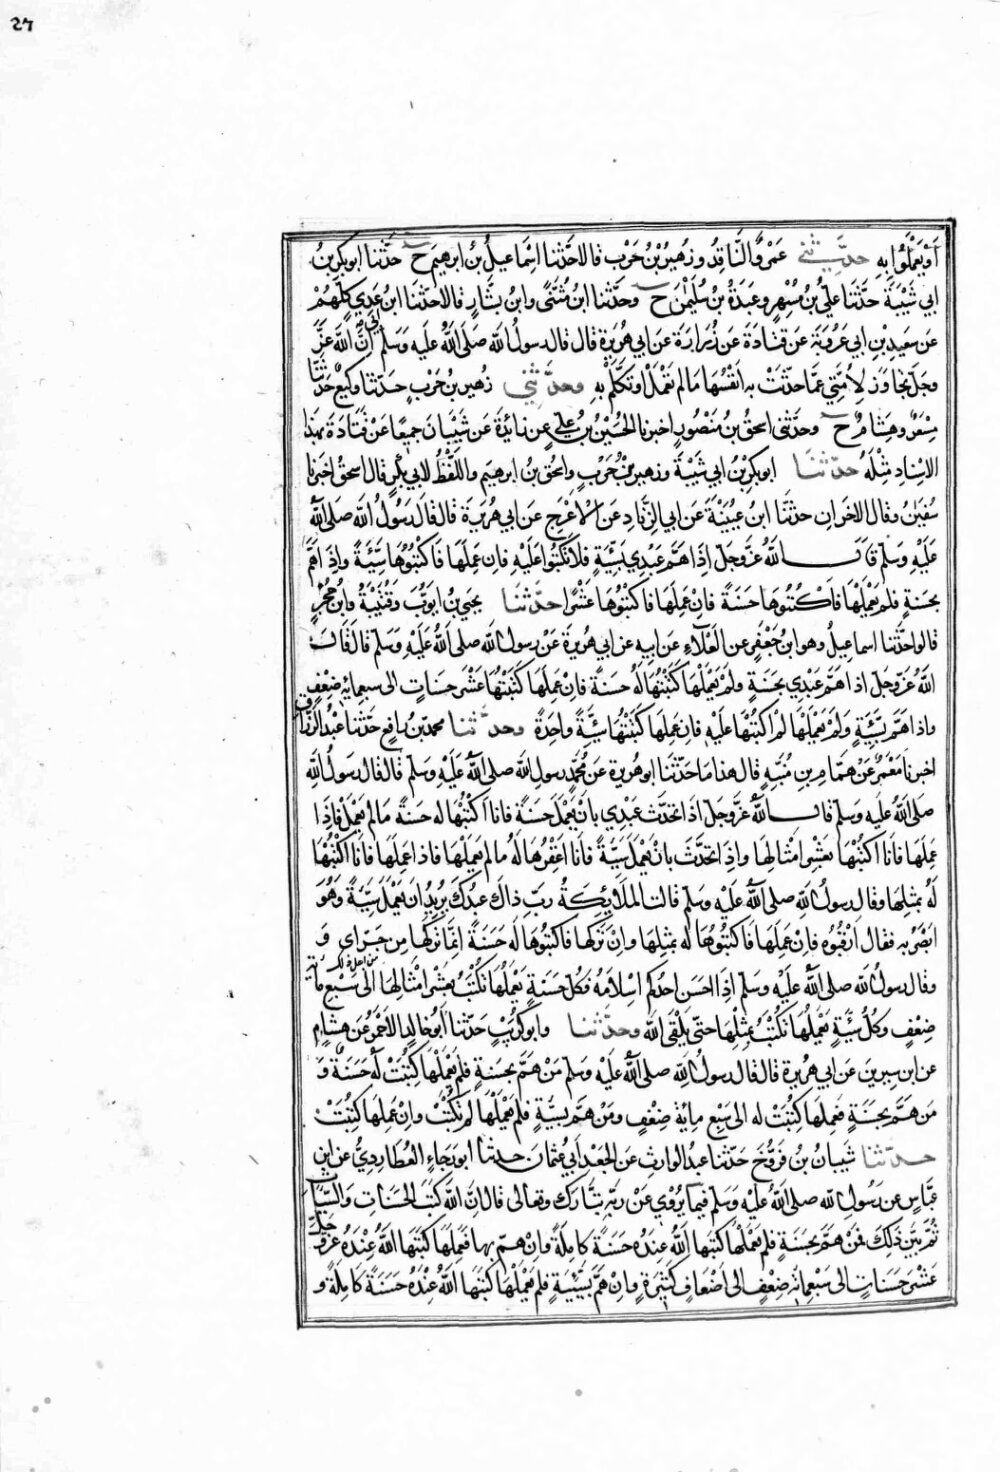 27
أَوْ يَعْمَلُوا بِهِ حدّثني عَمْرٌو النَّاقِدُ وزهيرُ بْنُ حَرْبٍ قالا حَدَّثنا اسْمَاعيلُ بْنُ ابرهيمَ ح حَدَّثنا ابوبكر بْنُ
ابي شَيْبَةَ حدَّثنَا عَلِيُّ بْنُ مُسْهِرٍ وعَبَدَةُ بْنُ سُلَيْمٰنَ ح وحَدَّثنا ابْنُ مُثَنًّى وابن بَشَّارٍ قالا حَدّثنا ابن عَدِي كلّهُمْ
عَن سَعِيدِ بْنِ ابي عَرُوبَةَ عَن قتَادَةَ عَن زُرَارَةَ عَن ابي هُرَيرةَ قال قال رسولُ الله صَلى اللهُ عَلَيه وَسَلم إنَّ اللهَ عَزَّ
وجَل تجاوَزَ لِأُمَّتِي عَمَّا حدّثَتْ به أَنفُسَهَا مَالم تَعْمَلْ أوتكَلَّمْ بِهِ وحدّثني زهير بن حَرْبٍ حَدّثنا وكيعٌ حَدّثنَا
مِسْعَرٌ وهِشَامٌ ح وحدّثنى اسحقُ بن مَنْصُورٍ اخبرنا الحُسَيْنُ بن علي عن زَائِدَةَ عَن شَيْبَانَ جميعًا عَنْ قَتَادَةَ بهذا
الاسْنادِ مِثْلَهُ حدّثنا ابوبكر بْنُ ابي شَيْبَةَ وزهير بْنُ حَرْبٍ واسحق بن ابرهيم واللّفظُ لابي بَكْرٍ قال اسحقُ اخبَرنا
سُفيٰنُ وقال الاخرانِ حدّثنَا ابنُ عُيَيْنَةَ عَن ابي الزِّنادِ عَن الأعْرَجِ عَن ابي هُريرَةَ قال قَالَ رَسُولُ الله صَلى اللهُ
عَلَيْهِ وَسَلم قَالَ اللهُ عَزَّ وجَل اذَا هَمَّ عَبْدِي بسَيِّئَةٍ فَلَا تَكْتبُوا عَلَيْهِ فَان عَمِلَهَا فَاكْتبُوهَا سَيِّئةً واِذَا هَمَّ
بحسَنةٍ فلم يَعْمَلْهَا فَاكْتُبُوها حَسَنَةً فانْ عَمِلَهَا فاكتبُوهَا عَشْرًا حدّثنا يحيى بن ايوبَ وقُتَيْبَةُ وابن حُجْرٍ
قالوا حَدّثَنا اسماعيلُ وهو ابنُ جَعْفَرٍ عن العَلَاءِ عَن ابيه عن ابي هريرةَ عَنْ رسولِ اللهِ صلى اللهُ عَلَيْهِ وَسَلم قَالَ قَالَ
اللهُ عَزَّ وجَل اذا هَمَّ عَبْدِي بحسَنَةٍ ولَمْ يَعْمَلْهَا كَتَبْتُهَا لَهُ حَسَنةً فانْ عَمِلَهَا كَتَبْتُهَا عَشْرَ حَسَنَاتٍ الى سبعمِائة ضِعْفٍ
واذ اهَمَّ بسَيِّئةٍ وَلَمْ يَعْمَلْهَا لمْ اكتبْهَا عليْهِ فَانْ عَمِلَهَا كَتَبْتُهَا سَيِّئةً واحِدَةً وحدّثنا محمد بن رافعٍ حَدّثنا عَبْدُ الرزاقِ
اخبرنا مَعْمَرٌ عَنْ هَمَّامِ بن مُنَبِّهٍ قال هذا مَا حَدّثنَا ابوهريرة عَنْ مُحَمَّدٍ رسولِ اللهِ صلى اللهُ عَلَيْهِ وَسَلم قال قال رسُولُ اللهِ
صَلى اللهُ عَلَيه وَسَلم قال اللهُ عَزَّ وجل اذَا تحَدَّثَ عَبْدِي بانْ يَعْمَلَ حَسَنةً فانا أكْتُبُهَا له حَسَنةً مَا لَمْ يَعْمَلْ فَاِذَا
عَمِلَهَا فَانَا أَكْتُبُهَا بعَشْرِ امْثَالِهَا واِذَا تَحَدَّثَ بانْ يَعْمَلَ سَيِّئَةً فَأنَا اَغْفِرُهَا لَهُ مَالم يَعْمَلْهَا فاذا عَمِلَهَا فَانَا أَكْتُبُهَا
لَهُ بمثلِهَا وقال رسولُ اللهِ صلى اللهُ عَلَيْهِ وَسَلم قَالت المَلَائِكَةُ رَبِّ ذَاكَ عَبدُكَ يريْدُ اَنْ يَعْمَلَ سَيِّئَةً وَهُوَ
ابْصَرُ بهِ فقال ارْقُبُوهُ فاِنْ عَمِلَهَا فَاكْتُبُوهَا لَه بمثلِهَا واِنْ تَرَكَهَا فَاكتبُوهَا لَه حَسَنَةً اِنّمَا تَركَهَا مِنْ جَرَّايَ وَ
من اجل ذلك
وقال رسولُ اللهِ صلى اللهُ عَلَيْهِ وَسَلم اِذَا احسَن احدُكم اِسْلامَهُ فَكُلُّ حَسَنةٍ يَعْمَلُهَا تكتَبُ بعَشْرِ امْثَالِهَا الى سَبْعِ مائة
ضِعْفٍ وكُلُّ سَيِّئةٍ يَعْمَلُهَا تَكْتَبُ بمِثْلِهَا حتّى يَلْقَى الله وحدّثنا وابو كريبٍ حَدّثنا ابوخَالِدٍ الاحمَرُ عَن هِشَامٍ
عَن ابن سِيرينَ عَن ابي هُريرةَ قال قال رسولُ اللهِ صلى اللهُ عَلَيْهِ وَسَلم مَنْ هَمَّ بحسَنةٍ فلم يَعْمَلْهَا كُتِبَتْ لَهُ حَسَنةً وَ
مَن هَمَّ بحسَنَةٍ فعَمِلَهَا كُتِبَتْ له الى سَبْعِ مِائةِ ضِعْفٍ ومَنْ هَمَّ بسَيِّئَةٍ فلم يَعْمَلْهَا لم تُكْتَبْ وانْ عَمِلَهَا كُتِبَتْ
حدّثنا شَيبانُ بن فَرُّوخَ حَدّثنا عبدُ الوَارِثِ عَنِ الجَعْدِ أبي عُثمَانَ حدثنا ابو رَجَاءٍ العُطَارِدِيُّ عن ابنِ
عَبَّاسٍ عن رَسُولِ الله صلى اللهُ عَلَيْهِ وَسَلم فيمَا يَرْوِي عَنْ رَبّهِ تبَارَكَ وتعَالى قَال اِنَّ اللهَ كتَبَ الحَسَنَاتِ والسَّيِّئَاتِ
ثُمَّ بَيَّنَ ذلكَ فَمَنْ هَمَّ بحسَنَةٍ فلم يَعْمَلْهَا كتَبَهَا اللهُ عِندَهُ حَسَنةً كامِلةً وانْ هَمَّ بها فعَمِلَهَا كَتَبَهَا اللهُ عِنْدَهُ عَزَّ وجَلَّ
عَشْرَ حَسَنَاتٍ الى سَبْعِمائة ضِعْفٍ الى اَضْعَافٍ كَثِيرَةٍ وانْ هَمَّ بسَيِّئةٍ فلم يَعْمَلْهَا كتَبَهَا اللهُ عِنْدَهُ حَسَنَةً كامِلَةً و